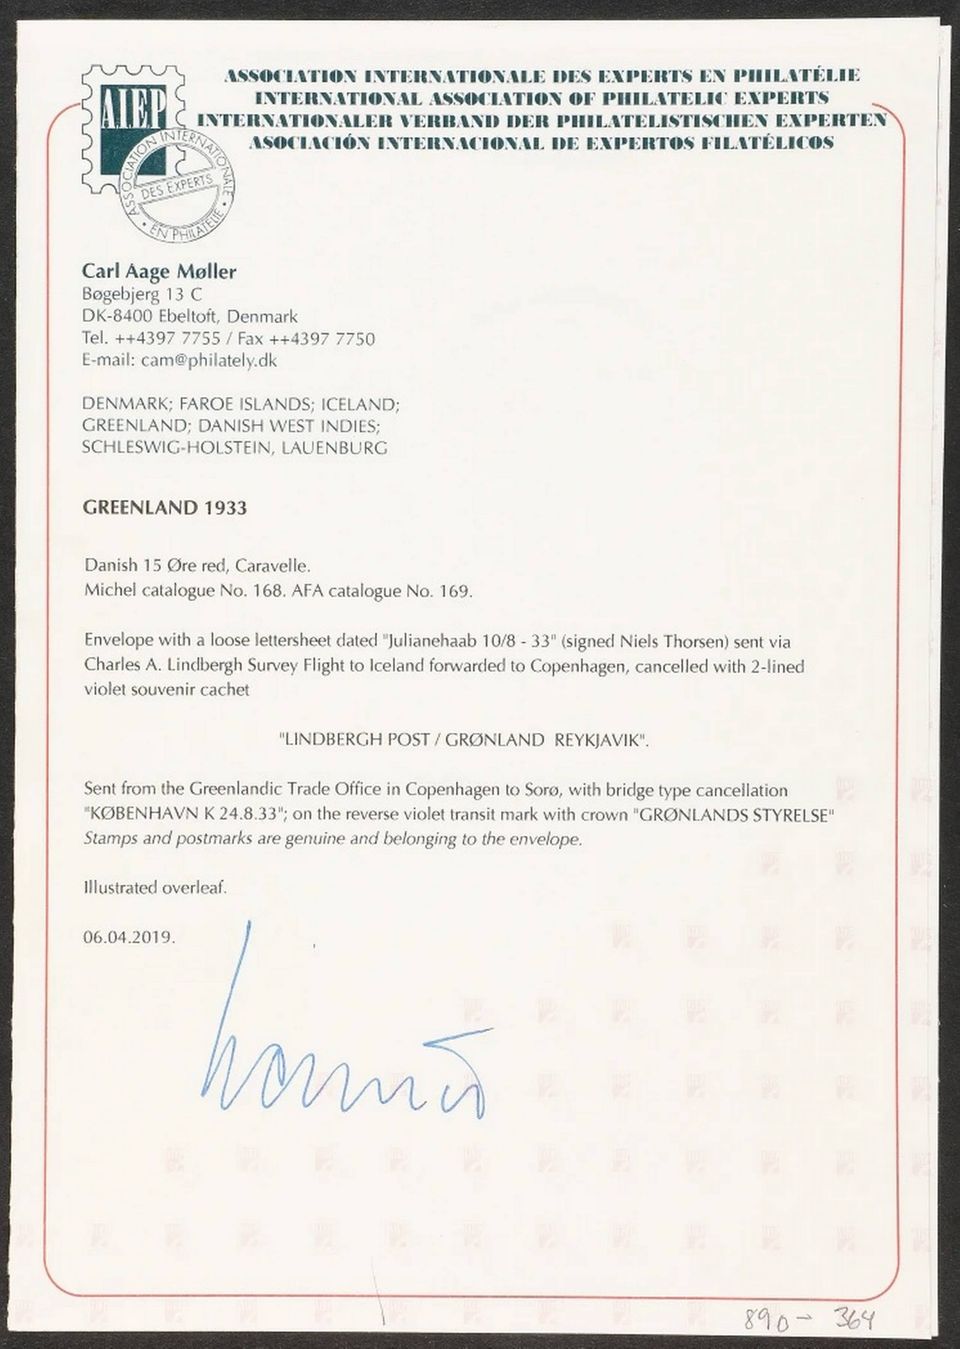 ASSOCIATION INTERNATIONALE DES EXPERTS EN PHILATÉLIE
INTERNATIONAL ASSOCIATION OF PHILATELIC EXPERTS
INTERNATIONALER VERBAND DER PHILATELISTISCHEN EXPERTEN
ASOCIACIÓN INTERNACIONAL DE EXPERTOS FILATÉLICOS
AIEP
ASSOCIATION INTERNATIONALE
DES EXPERTS
• EN PHILATELIE •
Carl Aage Møller
Bøgebjerg 13 C
DK-8400 Ebeltoft, Denmark
Tel. ++4397 7755 / Fax ++4397 7750
E-mail: cam@philately.dk
DENMARK; FAROE ISLANDS; ICELAND;
GREENLAND; DANISH WEST INDIES;
SCHLESWIG-HOLSTEIN, LAUENBURG
GREENLAND 1933
Danish 15 Øre red, Caravelle.
Michel catalogue No. 168. AFA catalogue No. 169.
Envelope with a loose lettersheet dated "Julianehaab 10/8 - 33" (signed Niels Thorsen) sent via
Charles A. Lindbergh Survey Flight to Iceland forwarded to Copenhagen, cancelled with 2-lined
violet souvenir cachet
"LINDBERGH POST / GRØNLAND REYKJAVIK".
Sent from the Greenlandic Trade Office in Copenhagen to Sorø, with bridge type cancellation
"KØBENHAVN K 24.8.33"; on the reverse violet transit mark with crown "GRØNLANDS STYRELSE"
Stamps and postmarks are genuine and belonging to the envelope.
Illustrated overleaf.
06.04.2019.
364